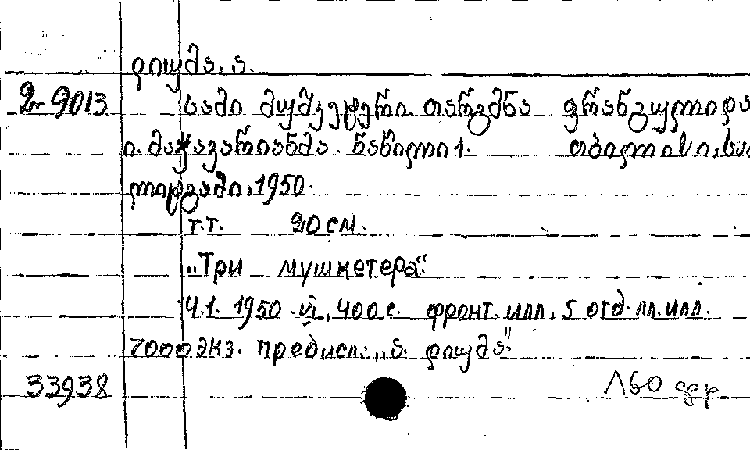 დიუმა, ა.
2-9013 სამი მუშკეტერი. თარგმნა ფრანგულიდა
ი. მაჭავარიანმა. ნაწილი 1. თბილისი, სა
ლიტგამი, 1950.
т.т. 20 см.
„Три мушкетера“.
Ч.1. 1950. 400 с. фронт. илл., 5 отд. лл. илл.
7000 экз. предисл.: „ა. დიუმა“
33938 160